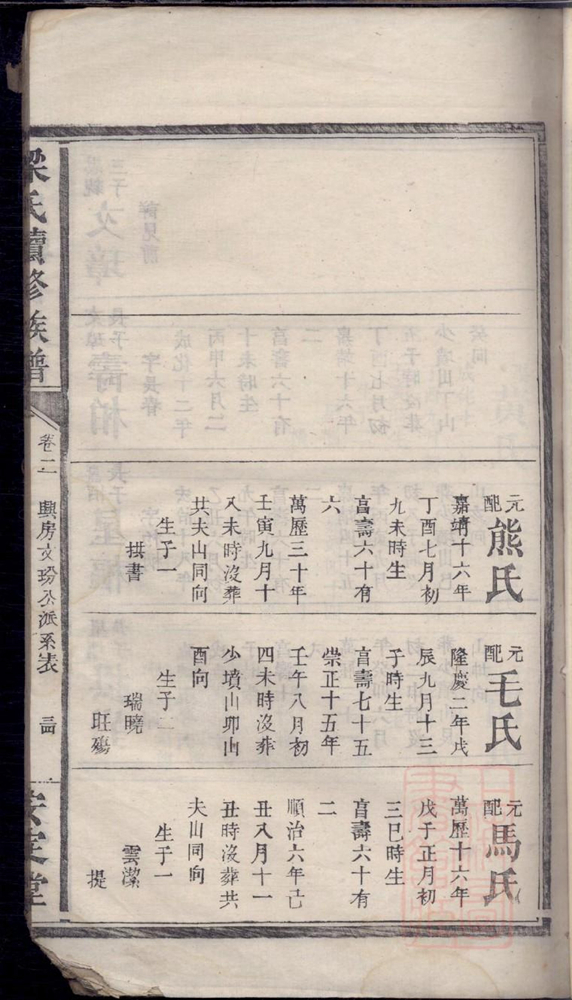 元配熊氏
嘉靖十六年
丁酉七月初
九未時生
亯壽六十有
六
萬歷三十年
壬寅九月十
八未時沒葬
共夫山同向
生子一
拱書
元配毛氏
隆慶二年戊
辰九月十三
子時生
亯壽七十五
崇正十五年
壬午八月初
四未時沒葬
少墳山卯山
酉向
生子二
瑞曉
旺殤
元配馬氏
萬歷十六年
戊子正月初
三巳時生
亯壽六十有
二
順治六年己
丑八月十一
丑時沒葬共
夫山同向
生子一
雲潔
提
梁氏續修族譜
卷二
興房文玢公派系表
安定堂